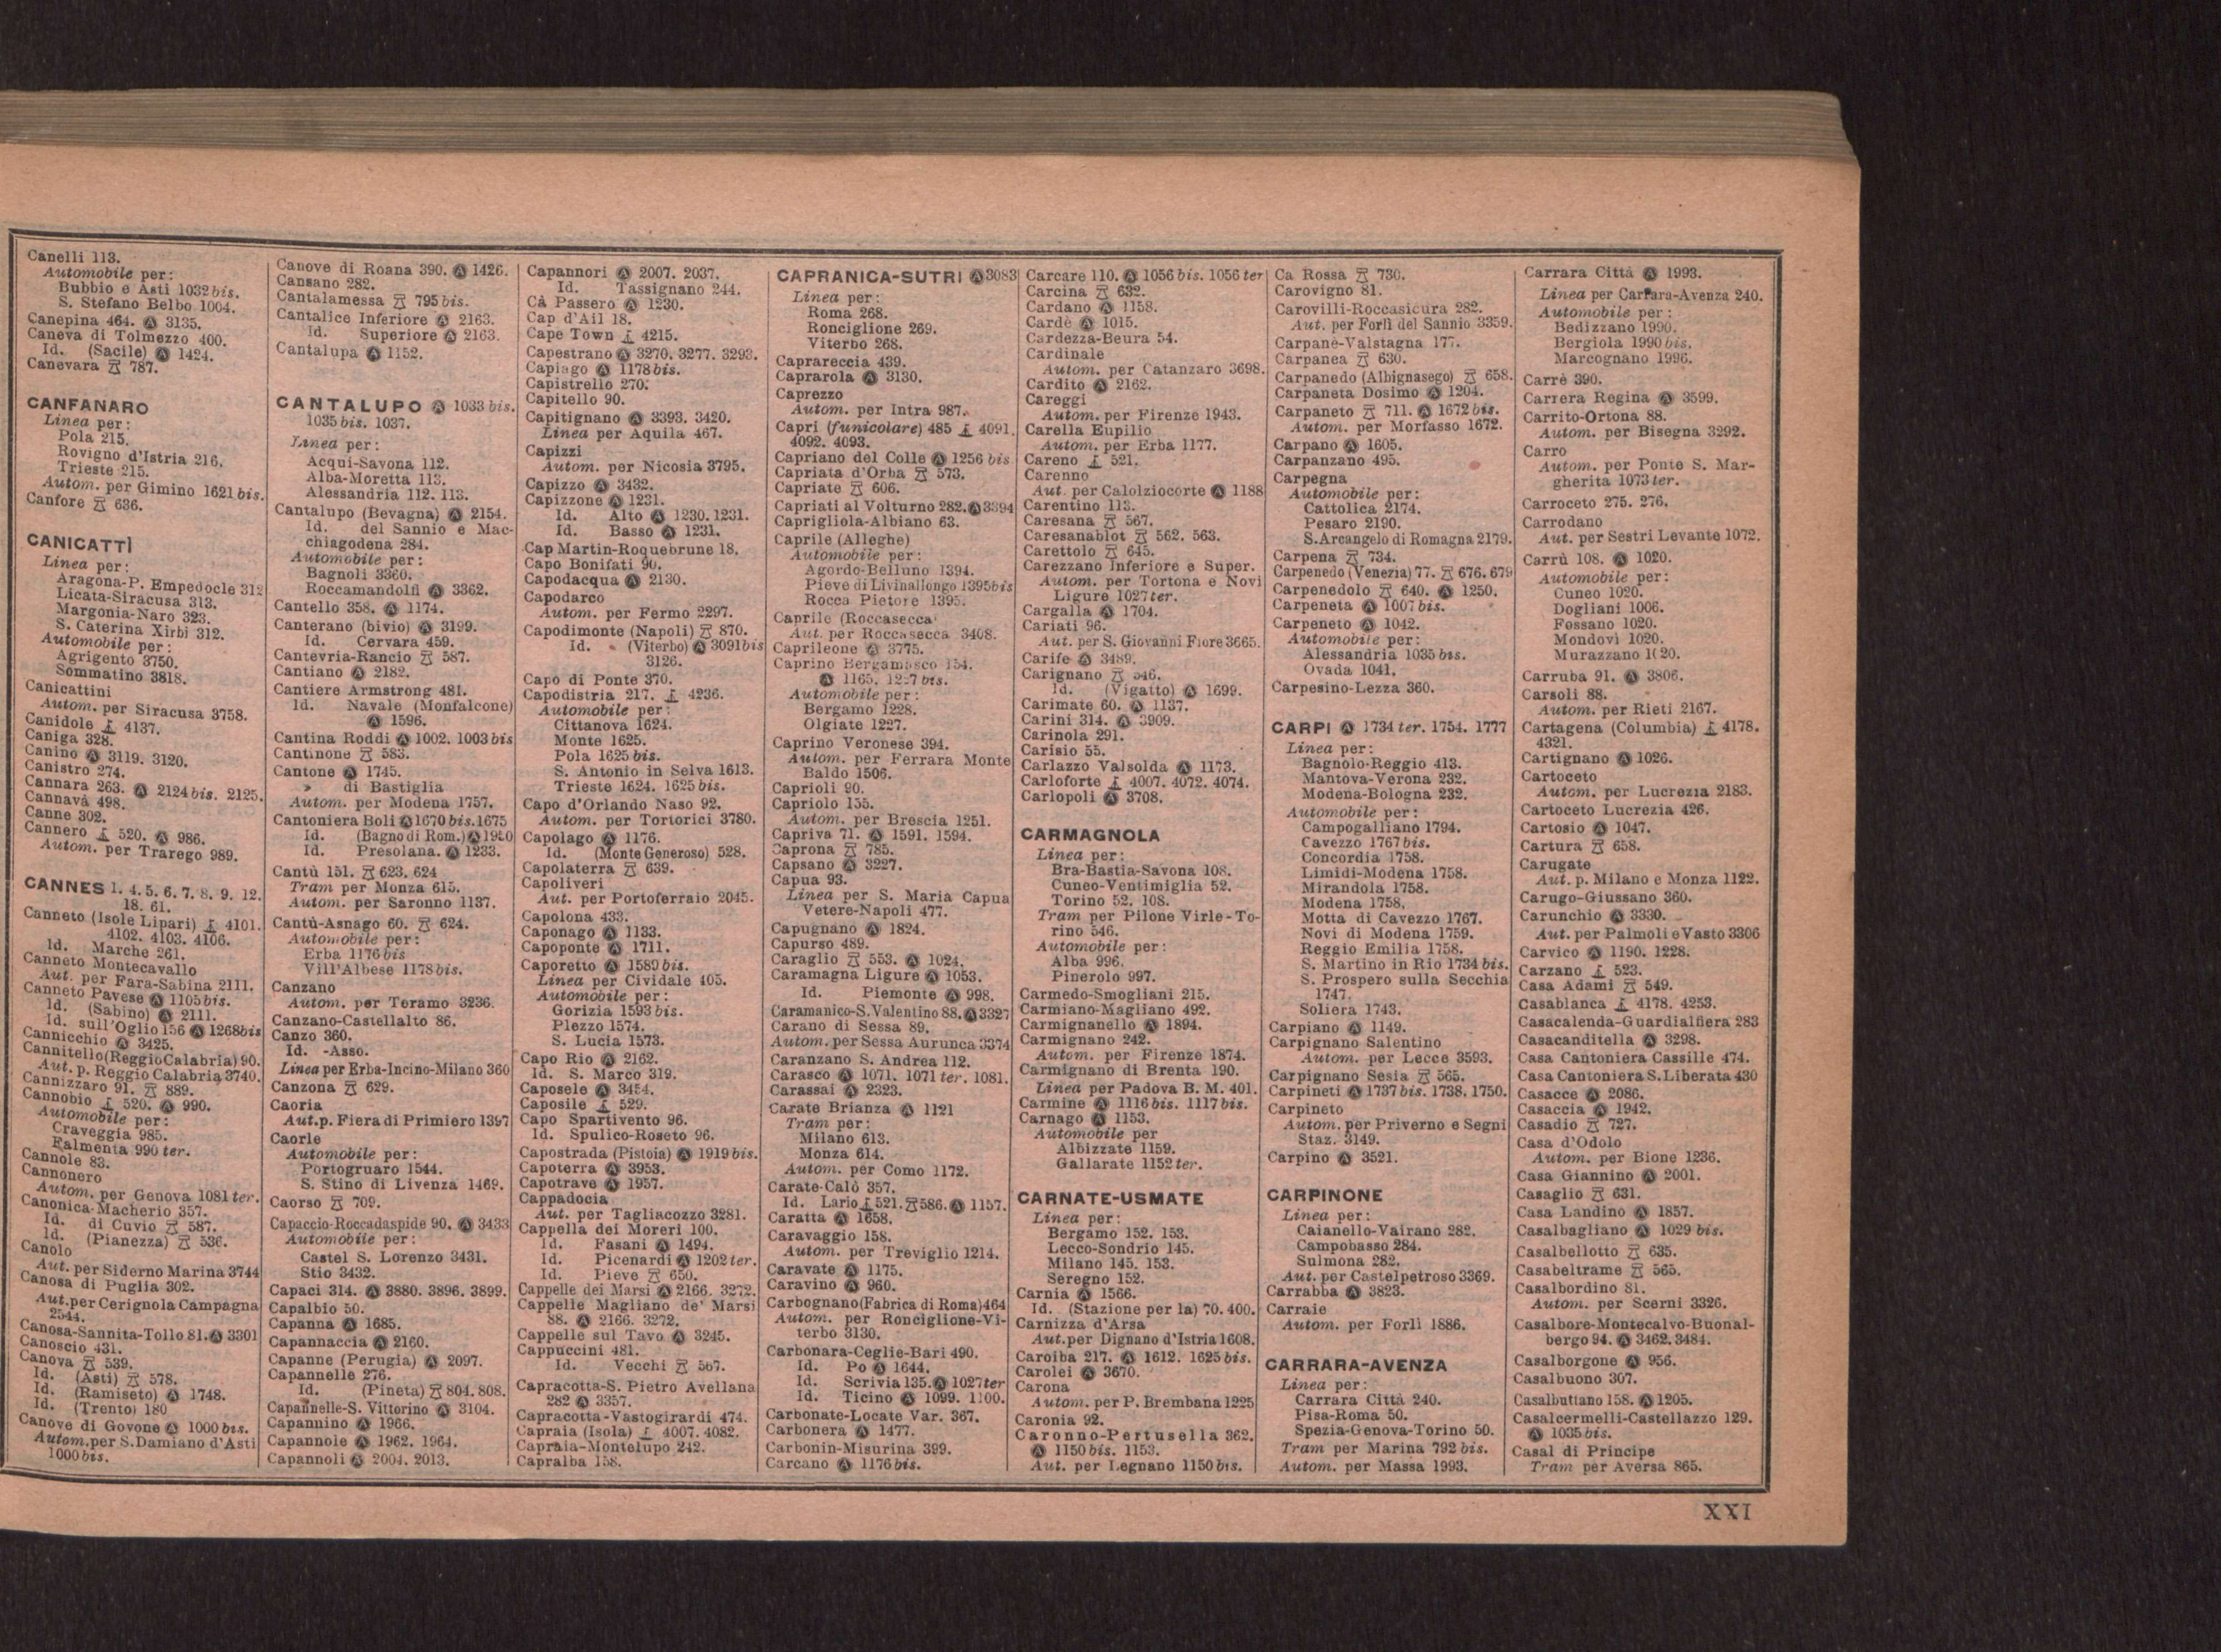 Canelli 113.
Automobile per:
Bubbio e Asti 1032 bis.
S. Stefano Belbo 1004.
Canepina 464. Ⓐ 3135.
Caneva di Tolmezzo 400.
Id. (Sacile) Ⓐ 1424.
Canevara 787.
CANFANARO
Linea per:
Pola 215.
Rovigno d'Istria 216.
Trieste 215.
Autom. per Gimino 1621 bis.
Canfore 636.
CANICATTÌ
Linea per:
Aragona-P. Empedocle 312
Licata-Siracusa 313.
Margonia-Naro 323.
S. Caterina Xirbi 312.
Automobile per:
Agrigento 3750.
Sommatino 3818.
Canicattini
Autom. per Siracusa 3758.
Canidole 4137.
Caniga 328.
Canino Ⓐ 3119. 3120.
Canistro 274.
Cannara 263. Ⓐ 2124 bis. 2125.
Cannavà 498.
Canne 302.
Cannero 520. Ⓐ 986.
Autom. per Trarego 989.
CANNES 1. 4. 5. 6. 7. 8. 9. 12.
18. 61.
Canneto (Isole Lipari) 4101.
4102. 4103. 4106.
Id. Marche 261.
Canneto Montecavallo
Aut. per Fara-Sabina 2111.
Canneto Pavese Ⓐ 1105 bis.
Id. (Sabino) Ⓐ 2111.
Id. sull'Oglio 156 Ⓐ 1268 bis
Cannicchio Ⓐ 3425.
Cannitello (Reggio Calabria) 90.
Aut. p. Reggio Calabria 3740.
Cannizzaro 91. 889.
Cannobio 520. Ⓐ 990.
Automobile per:
Craveggia 985.
Falmenta 990 ter.
Cannole 83.
Cannonero
Autom. per Genova 1081 ter.
Canonica-Macherio 357.
Id. di Cuvio 587.
Id. (Pianezza) 536.
Canolo
Aut. per Siderno Marina 3744
Canosa di Puglia 302.
Aut. per Cerignola Campagna
2544.
Canosa-Sannita-Tollo 81. Ⓐ 3301
Canoscio 431.
Canova 539.
Id. (Asti) 578.
Id. (Ramiseto) Ⓐ 1748.
Id. (Trento) 180
Canove di Govone Ⓐ 1000 bis.
Autom. per S. Damiano d'Asti
1000 bis.
Canove di Roana 390. Ⓐ 1426.
Cansano 282.
Cantalamessa 795 bis.
Cantalice Inferiore Ⓐ 2163.
Id. Superiore Ⓐ 2163.
Cantalupa Ⓐ 1152.
CANTALUPO Ⓐ 1033 bis.
1035 bis. 1037.
Linea per:
Acqui-Savona 112.
Alba-Moretta 113.
Alessandria 112. 113.
Cantalupo (Bevagna) Ⓐ 2154.
Id. del Sannio e Mac-
chiagodena 284.
Automobile per:
Bagnoli 3360.
Roccamandolfi Ⓐ 3362.
Cantello 358. Ⓐ 1174.
Canterano (bivio) Ⓐ 3199.
Id. Cervara 459.
Cantevria-Rancio 587.
Cantiano Ⓐ 2182.
Cantiere Armstrong 481.
Id. Navale (Monfalcone)
Ⓐ 1596.
Cantina Roddi Ⓐ 1002. 1003 bis
Cantinone 583.
Cantone Ⓐ 1745.
» di Bastiglia
Autom. per Modena 1757.
Cantoniera Boli Ⓐ 1670 bis. 1675
Id. (Bagno di Rom.) Ⓐ
Id. Presolana. Ⓐ 1233.
Cantù 151. 623. 624
Tram per Monza 615.
Autom. per Saronno 1137.
Cantù-Asnago 60. 624.
Automobile per:
Erba 1176 bis
Vill'Albese 1178 bis.
Canzano
Autom. per Teramo 3236.
Canzano-Castellalto 86.
Canzo 360.
Id. -Asso.
Linea per Erba-Incino-Milano 360
Canzona 629.
Caoria
Aut. p. Fiera di Primiero 1397
Caorle
Automobile per:
Portogruaro 1544.
S. Stino di Livenza 1469.
Caorso 709.
Capaccio-Roccadaspide 90. Ⓐ 3433
Automobile per:
Castel S. Lorenzo 3431.
Stio 3432.
Capaci 314. Ⓐ 3880. 3896. 3899.
Capalbio 50.
Capanna Ⓐ 1685.
Capannaccia Ⓐ 2160.
Capanne (Perugia) Ⓐ 2097.
Capannelle 276.
Id. (Pineta) 804. 808.
Capannelle-S. Vittorino Ⓐ 3104.
Capannino Ⓐ 1966.
Capannole Ⓐ 1962. 1964.
Capannoli Ⓐ 2004. 2013.
Capannori Ⓐ 2007. 2037.
Id. Tassignano 244.
Cà Passero Ⓐ 1230.
Cap d'Ail 18.
Cape Town 4215.
Capestrano Ⓐ 3270. 3277. 3293.
Capiago Ⓐ 1178 bis.
Capistrello 270.
Capitello 90.
Capitignano Ⓐ 3393. 3420.
Linea per Aquila 467.
Capizzi
Autom. per Nicosia 3795.
Capizzo Ⓐ 3432.
Capizzone Ⓐ 1231.
Id. Alto Ⓐ 1230. 1231.
Id. Basso Ⓐ 1231.
Cap Martin-Roquebrune 18.
Capo Bonifati 90.
Capodacqua Ⓐ 2130.
Capodarco
Autom. per Fermo 2297.
Capodimonte (Napoli) 870.
Id. (Viterbo) Ⓐ 3091 bis
3126.
Capo di Ponte 370.
Capodistria 217. 4236.
Automobile per:
Cittanova 1624.
Monte 1625.
Pola 1625 bis.
S. Antonio in Selva 1613.
Trieste 1624. 1625 bis.
Capo d'Orlando Naso 92.
Autom. per Tortorici 3780.
Capolago Ⓐ 1176.
Id. (Monte Generoso) 528.
Capolaterra 639.
Capoliveri
Aut. per Portoferraio 2045.
Capolona 433.
Caponago Ⓐ 1133.
Capoponte Ⓐ 1711.
Caporetto Ⓐ 1589 bis.
Linea per Cividale 405.
Automobile per:
Gorizia 1593 bis.
Plezzo 1574.
S. Lucia 1573.
Capo Rio Ⓐ 2162.
Id. S. Marco 319.
Caposele Ⓐ 3454.
Caposile 529.
Capo Spartivento 96.
Id. Spulico-Roseto 96.
Capostrada (Pistoia) Ⓐ 1919 bis.
Capoterra Ⓐ 3953.
Capotrave Ⓐ 1957.
Cappadocia
Aut. per Tagliacozzo 3281.
Cappella dei Moreri 100.
Id. Fasani Ⓐ 1494.
Id. Picenardi Ⓐ 1202 ter.
Id. Pieve 650.
Cappelle dei Marsi Ⓐ 2166. 3272.
Cappelle Magliano de' Marsi
88. Ⓐ 2166. 3272.
Cappelle sul Tavo Ⓐ 3245.
Cappuccini 481.
Id. Vecchi 567.
Capracotta-S. Pietro Avellana
282 Ⓐ 3357.
Capracotta-Vastogirardi 474.
Capraia (Isola) 4007. 4082.
Capraia-Montelupo 242.
Capralba 158.
CAPRANICA-SUTRI Ⓐ 3083
Linea per:
Roma 268.
Ronciglione 269.
Viterbo 268.
Caprareccia 439.
Caprarola Ⓐ 3130.
Caprezzo
Autom. per Intra 987.
Capri (funicolare) 485 4091.
4092. 4093.
Capriano del Colle Ⓐ 1256 bis
Capriata d'Orba 573.
Capriate 606.
Capriati al Volturno 282. Ⓐ 3394
Caprigliola-Albiano 63.
Caprile (Alleghe)
Automobile per:
Agordo-Belluno 1394.
Pieve di Livinallongo 1395 bis
Rocca Pietore 1395.
Caprile (Roccasecca)
Aut. per Roccasecca 3408.
Caprileone Ⓐ 3775.
Caprino Bergamasco 154.
Ⓐ 1165. 1227 bis.
Automobile per:
Bergamo 1228.
Olgiate 1227.
Caprino Veronese 394.
Autom. per Ferrara Monte
Baldo 1506.
Caprioli 90.
Capriolo 155.
Autom. per Brescia 1251.
Capriva 71. Ⓐ 1591. 1594.
Caprona 785.
Capsano Ⓐ 3227.
Capua 93.
Linea per S. Maria Capua
Vetere-Napoli 477.
Capugnano Ⓐ 1824.
Capurso 489.
Caraglio 553. Ⓐ 1024.
Caramagna Ligure Ⓐ 1053.
Id. Piemonte Ⓐ 998.
Caramanico-S. Valentino 88. Ⓐ 3327
Carano di Sessa 89.
Autom. per Sessa Aurunca 3374
Caranzano S. Andrea 112.
Carasco Ⓐ 1071. 1071 ter. 1081.
Carassai Ⓐ 2323.
Carate Brianza Ⓐ 1121
Tram per:
Milano 613.
Monza 614.
Autom. per Como 1172.
Carate-Calò 357.
Id. Lario 521. 586. Ⓐ 1157.
Caratta Ⓐ 1658.
Caravaggio 158.
Autom. per Treviglio 1214.
Caravate Ⓐ 1175.
Caravino Ⓐ 960.
Carbognano (Fabrica di Roma) 464
Autom. per Ronciglione-Vi-
terbo 3130.
Carbonara-Ceglie-Bari 490.
Id. Po Ⓐ 1644.
Id. Scrivia 135. Ⓐ 1027 ter
Id. Ticino Ⓐ 1099. 1100.
Carbonate-Locate Var. 367.
Carbonera Ⓐ 1477.
Carbonin-Misurina 399.
Carcano Ⓐ 1176 bis.
Carcare 110. Ⓐ 1056 bis. 1056 ter
Carcina 632.
Cardano Ⓐ 1158.
Cardè Ⓐ 1015.
Cardezza-Beura 54.
Cardinale
Autom. per Catanzaro 3698.
Cardito Ⓐ 2162.
Careggi
Autom. per Firenze 1943.
Carella Eupilio
Autom. per Erba 1177.
Careno 521.
Carenno
Aut. per Calolziocorte Ⓐ 1188
Carentino 113.
Caresana 567.
Caresanablot 562. 563.
Carettolo 645.
Carezzano Inferiore e Super.
Autom. per Tortona e Novi
Ligure 1027 ter.
Cargalla Ⓐ 1704.
Cariati 96.
Aut. per S. Giovanni Fiore 3665.
Carife Ⓐ 3489.
Carignano 546.
Id. (Vigatto) Ⓐ 1699.
Carimate 60. Ⓐ 1137.
Carini 314. Ⓐ 3909.
Carinola 291.
Carisio 55.
Carlazzo Valsolda Ⓐ 1173.
Carloforte 4007. 4072. 4074.
Carlopoli Ⓐ 3708.
CARMAGNOLA
Linea per:
Bra-Bastia-Savona 108.
Cuneo-Ventimiglia 52.
Torino 52. 108.
Tram per Pilone Virle-To-
rino 546.
Automobile per:
Alba 996.
Pinerolo 997.
Carmedo-Smogliani 215.
Carmiano-Magliano 492.
Carmignanello Ⓐ 1894.
Carmignano 242.
Autom. per Firenze 1874.
Carmignano di Brenta 190.
Linea per Padova B. M. 401.
Carmine Ⓐ 1116 bis. 1117 bis.
Carnago Ⓐ 1153.
Automobile per
Albizzate 1159.
Gallarate 1152 ter.
CARNATE-USMATE
Linea per:
Bergamo 152. 153.
Lecco-Sondrio 145.
Milano 145. 153.
Seregno 152.
Carnia Ⓐ 1566.
Id. (Stazione per la) 70. 400.
Carnizza d'Arsa
Aut. per Dignano d'Istria 1608.
Caroiba 217. Ⓐ 1612. 1625 bis.
Carolei Ⓐ 3670.
Carona
Autom. per P. Brembana 1225
Caronia 92.
Caronno-Pertusella 362.
Ⓐ 1150 bis. 1153.
Aut. per Legnano 1150 bis.
Ca Rossa 730.
Carovigno 81.
Carovilli-Roccasicura 282.
Aut. per Forlì del Sannio 3359.
Carpanè-Valstagna 177.
Carpanea 630.
Carpanedo (Albignasego) 658.
Carpaneta Dosimo Ⓐ 1204.
Carpaneto 711. Ⓐ 1672 bis.
Autom. per Morfasso 1672.
Carpano Ⓐ 1605.
Carpanzano 495.
Carpegna
Automobile per:
Cattolica 2174.
Pesaro 2190.
S. Arcangelo di Romagna 2179.
Carpena 734.
Carpenedo (Venezia) 77. 676. 679
Carpenedolo 640. Ⓐ 1250.
Carpeneta Ⓐ 1007 bis.
Carpeneto Ⓐ 1042.
Automobile per:
Alessandria 1035 bis.
Ovada 1041.
Carpesino-Lezza 360.
CARPI Ⓐ 1734 ter. 1754. 1777
Linea per:
Bagnolo-Reggio 413.
Mantova-Verona 232.
Modena-Bologna 232.
Automobile per:
Campogalliano 1794.
Cavezzo 1767 bis.
Concordia 1758.
Limidi-Modena 1758.
Mirandola 1758.
Modena 1758.
Motta di Cavezzo 1767.
Novi di Modena 1759.
Reggio Emilia 1758.
S. Martino in Rio 1734 bis.
S. Prospero sulla Secchia
1747.
Soliera 1743.
Carpiano Ⓐ 1149.
Carpignano Salentino
Autom. per Lecce 3593.
Carpignano Sesia 565.
Carpineti Ⓐ 1737 bis. 1738. 1750.
Carpineto
Autom. per Priverno e Segni
Staz. 3149.
Carpino Ⓐ 3521.
CARPINONE
Linea per:
Caianello-Vairano 282.
Campobasso 284.
Sulmona 282.
Aut. per Castelpetroso 3369.
Carrabba Ⓐ 3823.
Carraie
Autom. per Forlì 1886.
CARRARA-AVENZA
Linea per:
Carrara Città 240.
Pisa-Roma 50.
Spezia-Genova-Torino 50.
Tram per Marina 792 bis.
Autom. per Massa 1993.
Carrara Città Ⓐ 1993.
Linea per Carrara-Avenza 240.
Automobile per:
Bedizzano 1990.
Bergiola 1990 bis.
Marcognano 1996.
Carrè 390.
Carrera Regina Ⓐ 3599.
Carrito-Ortona 88.
Autom. per Bisegna 3292.
Carro
Autom. per Ponte S. Mar-
gherita 1073 ter.
Carroceto 275. 276.
Carrodano
Aut. per Sestri Levante 1072.
Carrù 108. Ⓐ 1020.
Automobile per:
Cuneo 1020.
Dogliani 1006.
Fossano 1020.
Mondovì 1020.
Murazzano 1020.
Carruba 91. Ⓐ 3806.
Carsoli 88.
Autom. per Rieti 2167.
Cartagena (Columbia) 4178.
4321.
Cartignano Ⓐ 1026.
Cartoceto
Autom. per Lucrezia 2183.
Cartoceto Lucrezia 426.
Cartosio Ⓐ 1047.
Cartura 658.
Carugate
Aut. p. Milano e Monza 1122.
Carugo-Giussano 360.
Carunchio Ⓐ 3330.
Aut. per Palmoli e Vasto 3306
Carvico Ⓐ 1190. 1228.
Carzano 523.
Casa Adami 549.
Casablanca 4178. 4253.
Casacalenda-Guardialfiera 283
Casacanditella Ⓐ 3298.
Casa Cantoniera Cassille 474.
Casa Cantoniera S. Liberata 430
Casacce Ⓐ 2086.
Casaccia Ⓐ 1942.
Casadio 727.
Casa d'Odolo
Autom. per Bione 1236.
Casa Giannino Ⓐ 2001.
Casaglio 631.
Casa Landino Ⓐ 1857.
Casalbagliano Ⓐ 1029 bis.
Casalbellotto 635.
Casabeltrame 565.
Casalbordino 81.
Autom. per Scerni 3326.
Casalbore-Montecalvo-Buonal-
bergo 94. Ⓐ 3462. 3484.
Casalborgone Ⓐ 956.
Casalbuono 307.
Casalbuttano 158. Ⓐ 1205.
Casalcermelli-Castellazzo 129.
Ⓐ 1035 bis.
Casal di Principe
Tram per Aversa 865.
XXI